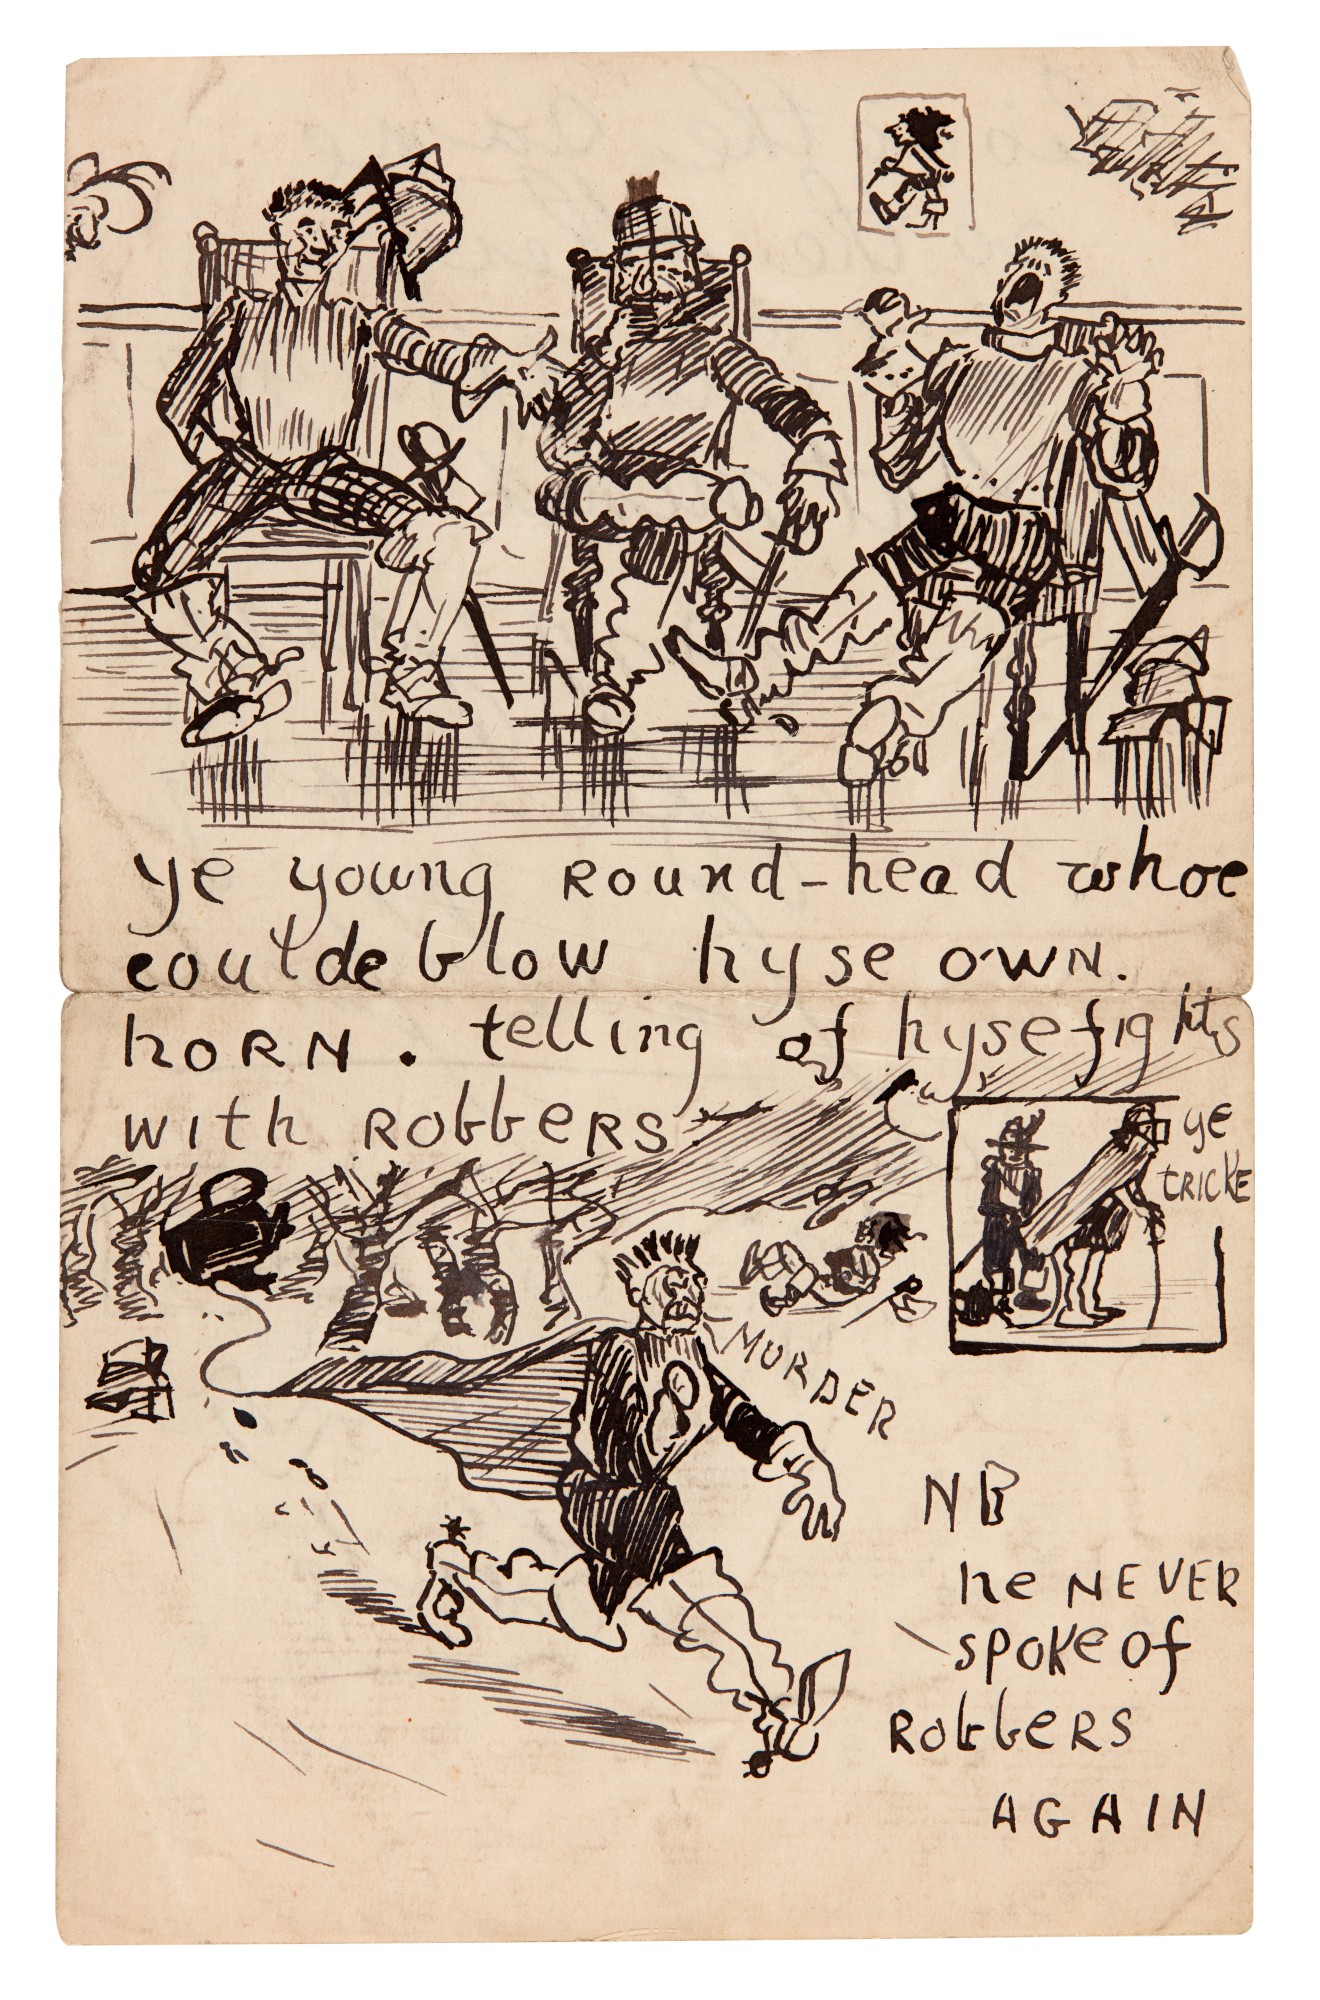 ye young Round-head whoe
coulde blow hyse own.
horn. telling of hyse fights
with Robbers
ye
tricke
MURDER
NB
he NEVER
spoke of
Robbers
AGAIN